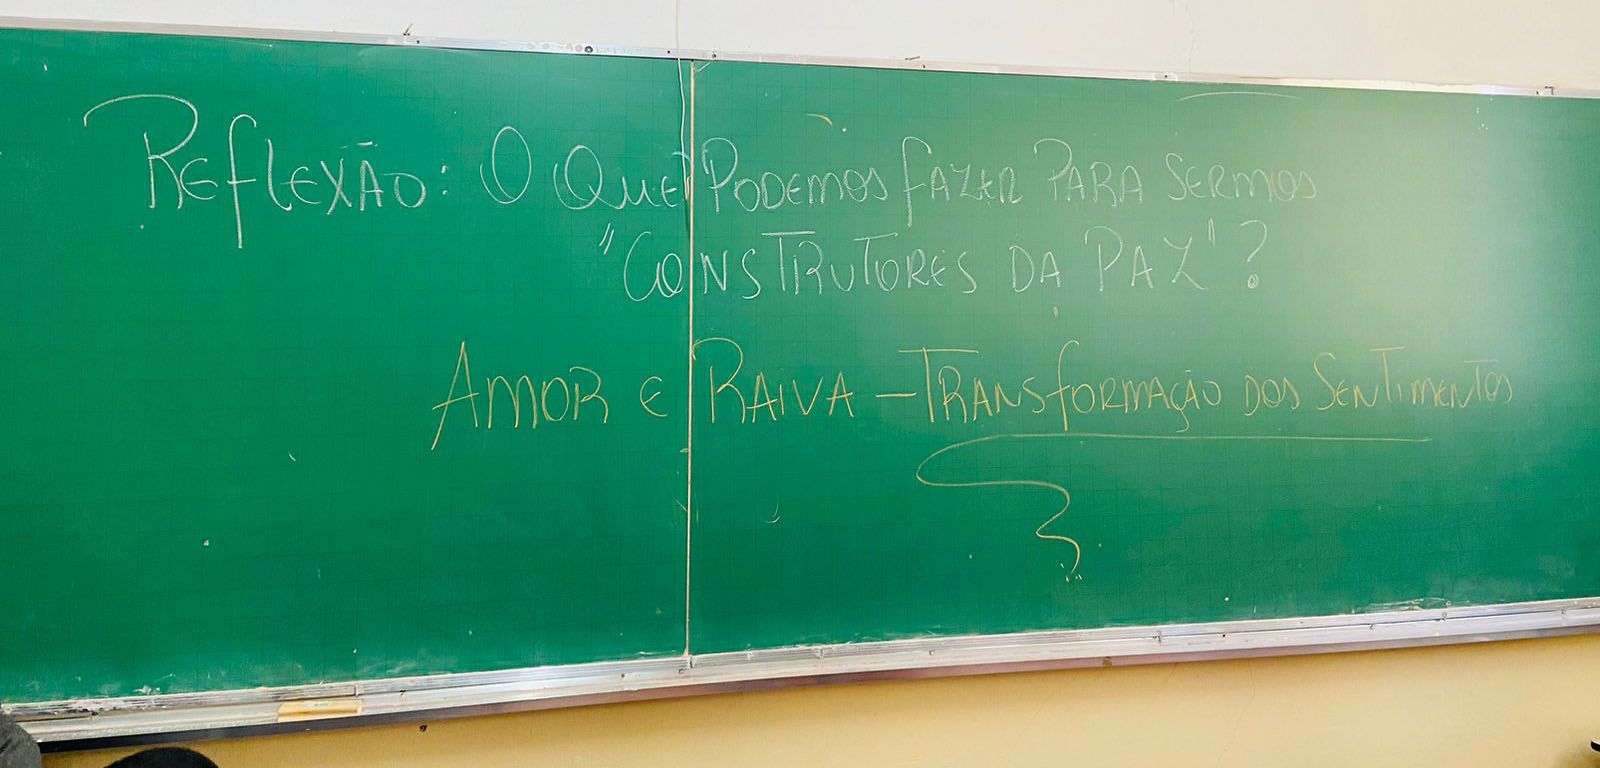 Reflexão: O Que Podemos fazer para sermos
"Construtores da Paz"?
Amor e Raiva - Transformação dos Sentimentos